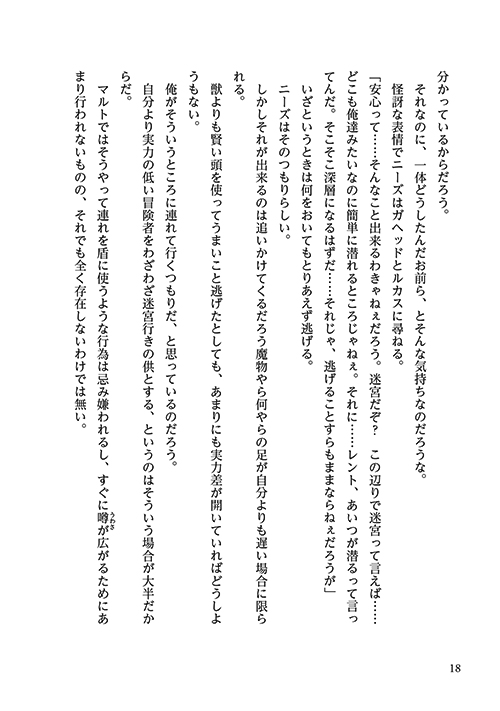 分かっているからだろう。
　それなのに、一体どうしたんだお前ら、とそんな気持ちなのだろうな。
　怪訝な表情でニーズはガヘッドとルカスに尋ねる。
「安心って……そんなこと出来るわきゃねぇだろう。迷宮だぞ？　この辺りで迷宮って言えば……
どこも俺達みたいなのに簡単に潜れるところじゃねぇ。それに……レント、あいつが潜るって言っ
てんだ。そこそこ深層になるはずだ……それじゃ、逃げることすらもままならねぇだろうが」
　いざというときは何をおいてもとりあえず逃げる。
　ニーズはそのつもりらしい。
　しかしそれが出来るのは追いかけてくるだろう魔物やら何やらの足が自分よりも遅い場合に限ら
れる。
　獣よりも賢い頭を使ってうまいこと逃げたとしても、あまりにも実力差が開いていればどうしよ
うもない。
　俺がそういうところに連れて行くつもりだ、と思っているのだろう。
　自分より実力の低い冒険者をわざわざ迷宮行きの供とする、というのはそういう場合が大半だか
らだ。
　マルトではそうやって連れを盾に使うような行為は忌み嫌われるし、すぐに噂うわさが広がるためにあ
まり行われないものの、それでも全く存在しないわけでは無い。
18